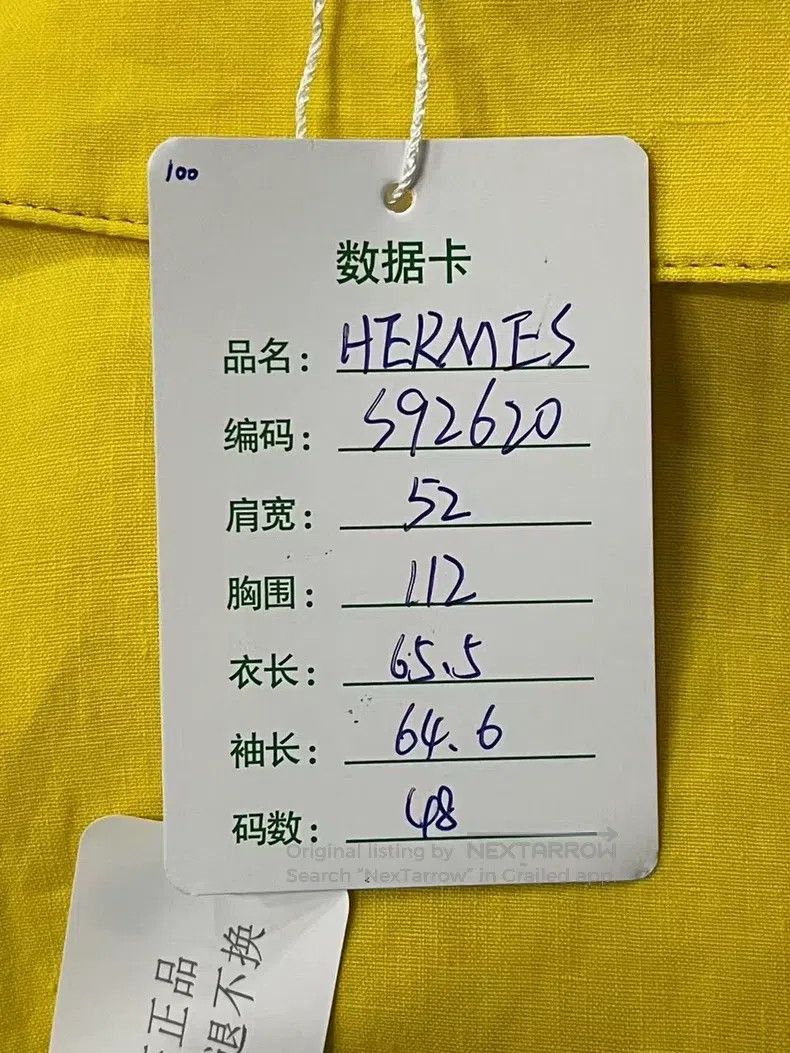 100
数据卡
品名: HERMES
编码: S92620
肩宽: 52
胸围: 112
衣长: 65.5
袖长: 64.6
码数: 48
Original listing by NEXTARROW
Search "NexTarrow" in Grailed app
正品
退不换